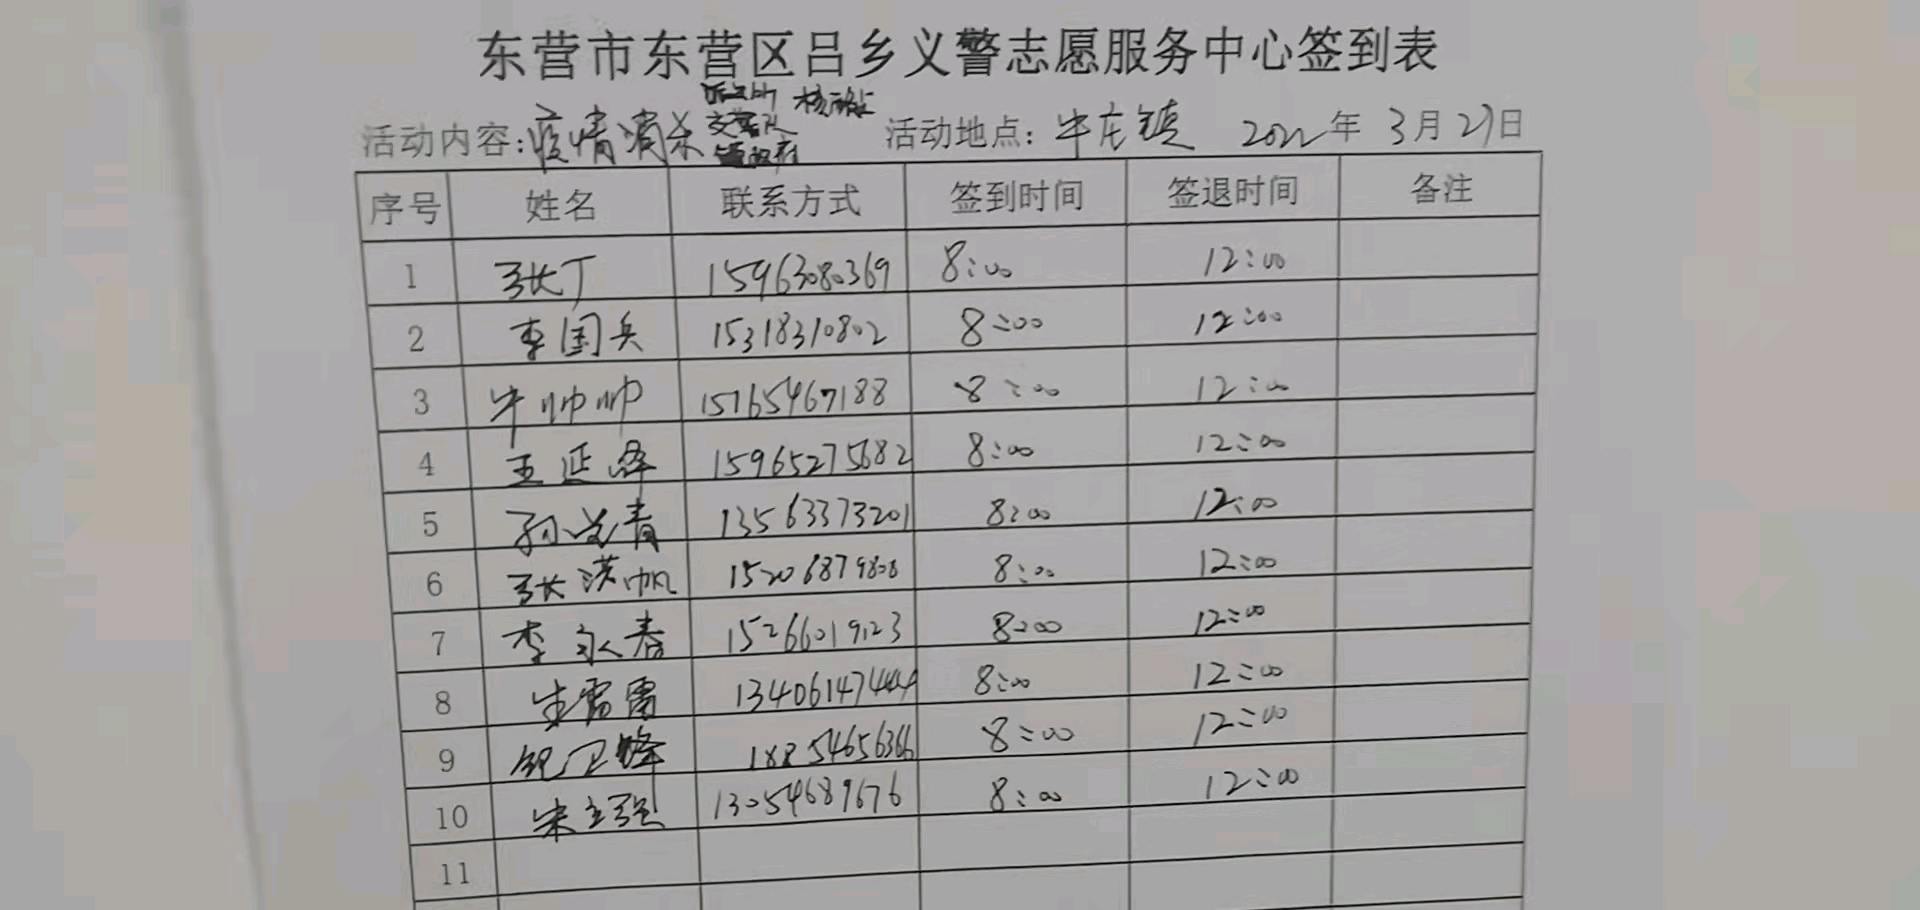 东营市东营区吕乡义警志愿服务中心签到表
活动内容:疫情消杀 派出所 交警队 镇政府 活动地点:牛庄镇 2022年3月27日
序号 姓名 联系方式 签到时间 签退时间 备注
1 张丁 15963080369 8:00 12:00
2 李国兵 15318310802 8:00 12:00
3 牛帅帅 15165467188 8:00 12:00
4 王延峰 15965275682 8:00 12:00
5 孙 青 13563373201 8:00 12:00
6 张洪帆 15206879808 8:00 12:00
7 李永春 15266019123 8:00 12:00
8 生雷雷 13406147444 8:00 12:00
9 纪卫峰 18854656366 8:00 12:00
10 宋立强 13054689676 8:00 12:00
11